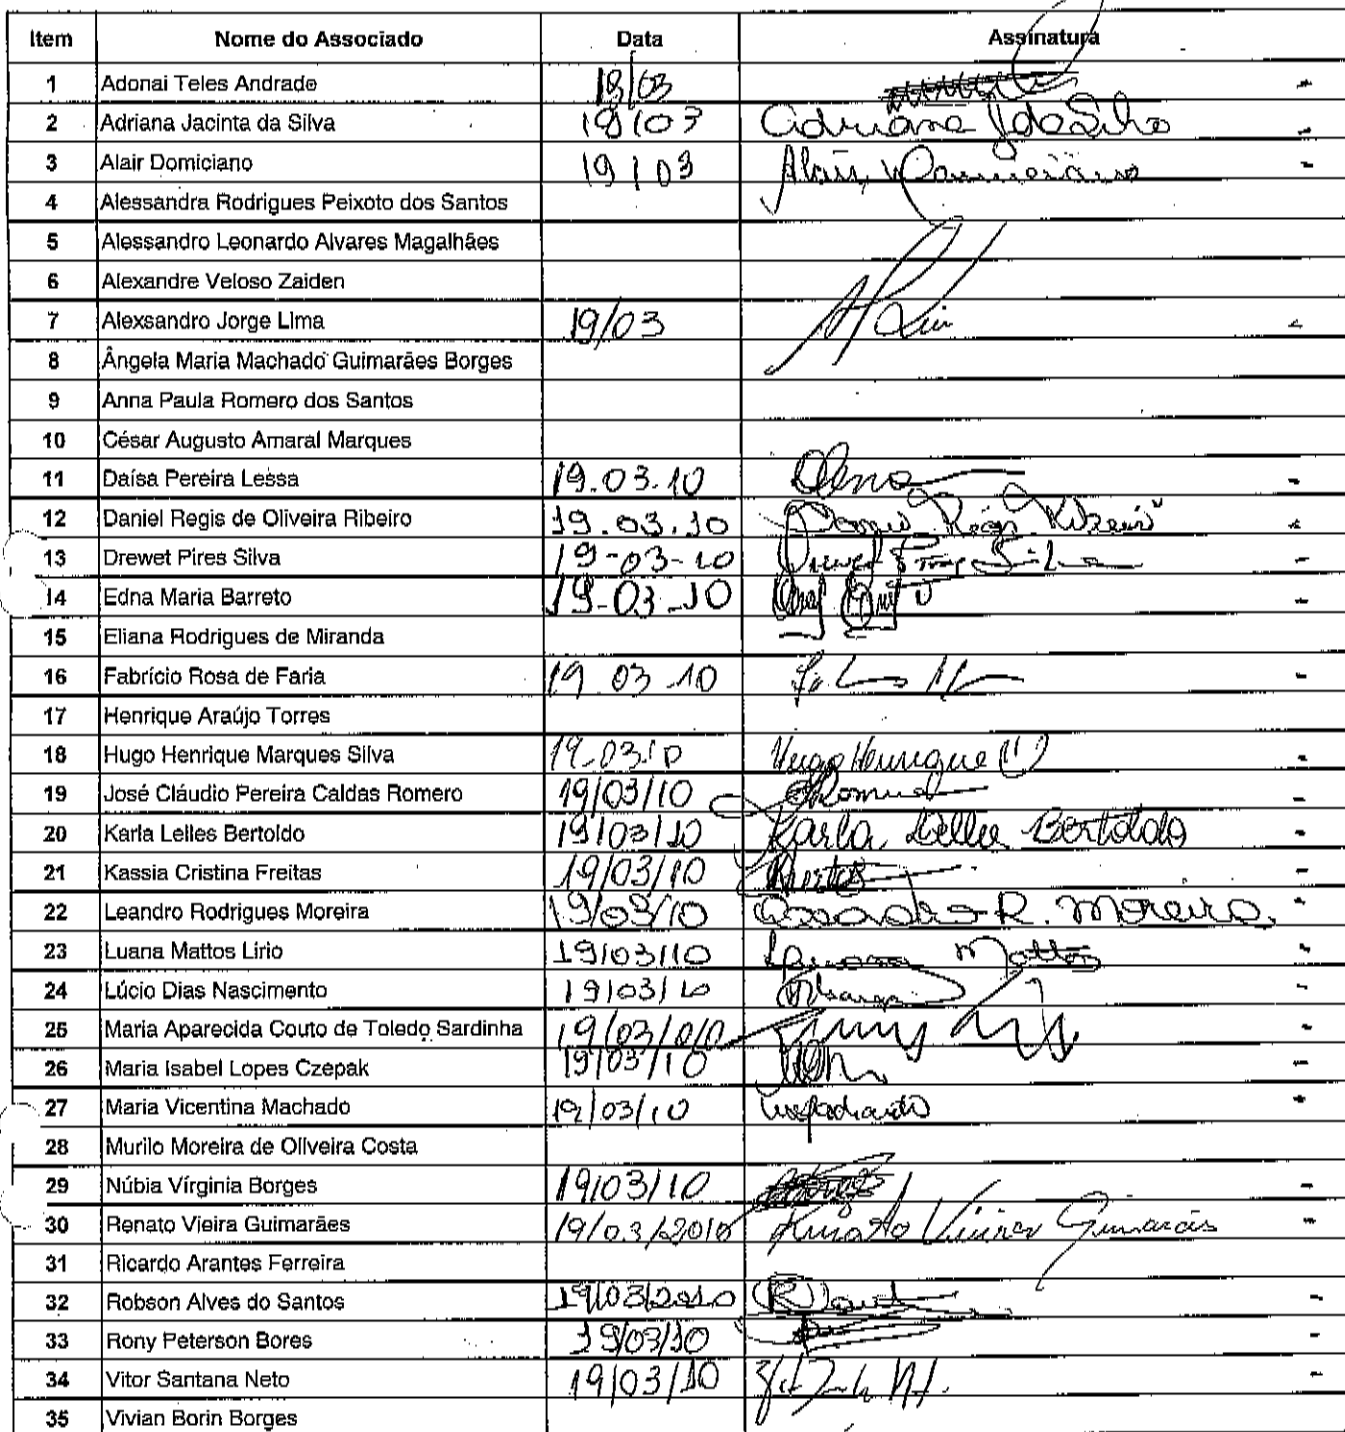 Item Nome do Associado Data Assinatura
1 Adonai Teles Andrade 18/03
2 Adriana Jacinta da Silva 18/03 Adriana J da Silva
3 Alair Domiciano 19/03 Alair Domiciano
4 Alessandra Rodrigues Peixoto dos Santos
5 Alessandro Leonardo Alvares Magalhães
6 Alexandre Veloso Zaiden
7 Alexsandro Jorge Lima 19/03
8 Ângela Maria Machado Guimarães Borges
9 Anna Paula Romero dos Santos
10 César Augusto Amaral Marques
11 Daísa Pereira Lessa 19.03.10
12 Daniel Regis de Oliveira Ribeiro 19.03.10
13 Drewet Pires Silva 19-03-10 Drewet Pires Silva
14 Edna Maria Barreto 19-03-10
15 Eliana Rodrigues de Miranda
16 Fabrício Rosa de Faria 19 03 10
17 Henrique Araújo Torres
18 Hugo Henrique Marques Silva 19.03.10 Hugo Henrique
19 José Cláudio Pereira Caldas Romero 19/03/10
20 Karla Lelles Bertoldo 19/03/10 Karla Lelles Bertoldo
21 Kassia Cristina Freitas 19/03/10
22 Leandro Rodrigues Moreira 19/03/10 Leandro R. Moreira
23 Luana Mattos Lirio 19/03/10 Luana Mattos
24 Lúcio Dias Nascimento 19/03/10
25 Maria Aparecida Couto de Toledo Sardinha 19/03/010
26 Maria Isabel Lopes Czepak 19/03/10
27 Maria Vicentina Machado 19/03/10
28 Murilo Moreira de Oliveira Costa
29 Núbia Vírginia Borges 19/03/10
30 Renato Vieira Guimarães 19/03/2010 Renato Vieira Guimarães
31 Ricardo Arantes Ferreira
32 Robson Alves do Santos 19/03/2010
33 Rony Peterson Bores 19/03/10
34 Vitor Santana Neto 19/03/10
35 Vivian Borin Borges